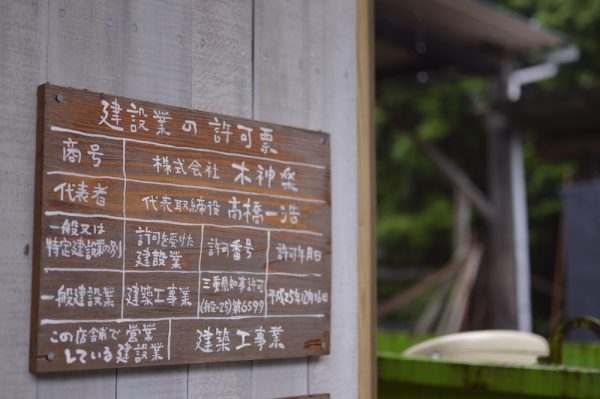 建設業の許可票
商号 株式会社 木神楽
代表者 代表取締役 高橋一浩
一般又は
特定建設業の別
許可を受けた
建設業
許可番号
許可年月日
一般建設業
建築工事業
三重県知事許可
(般-25)第6599
平成25年12月16日
この店舗で営業
している建設業
建築工事業